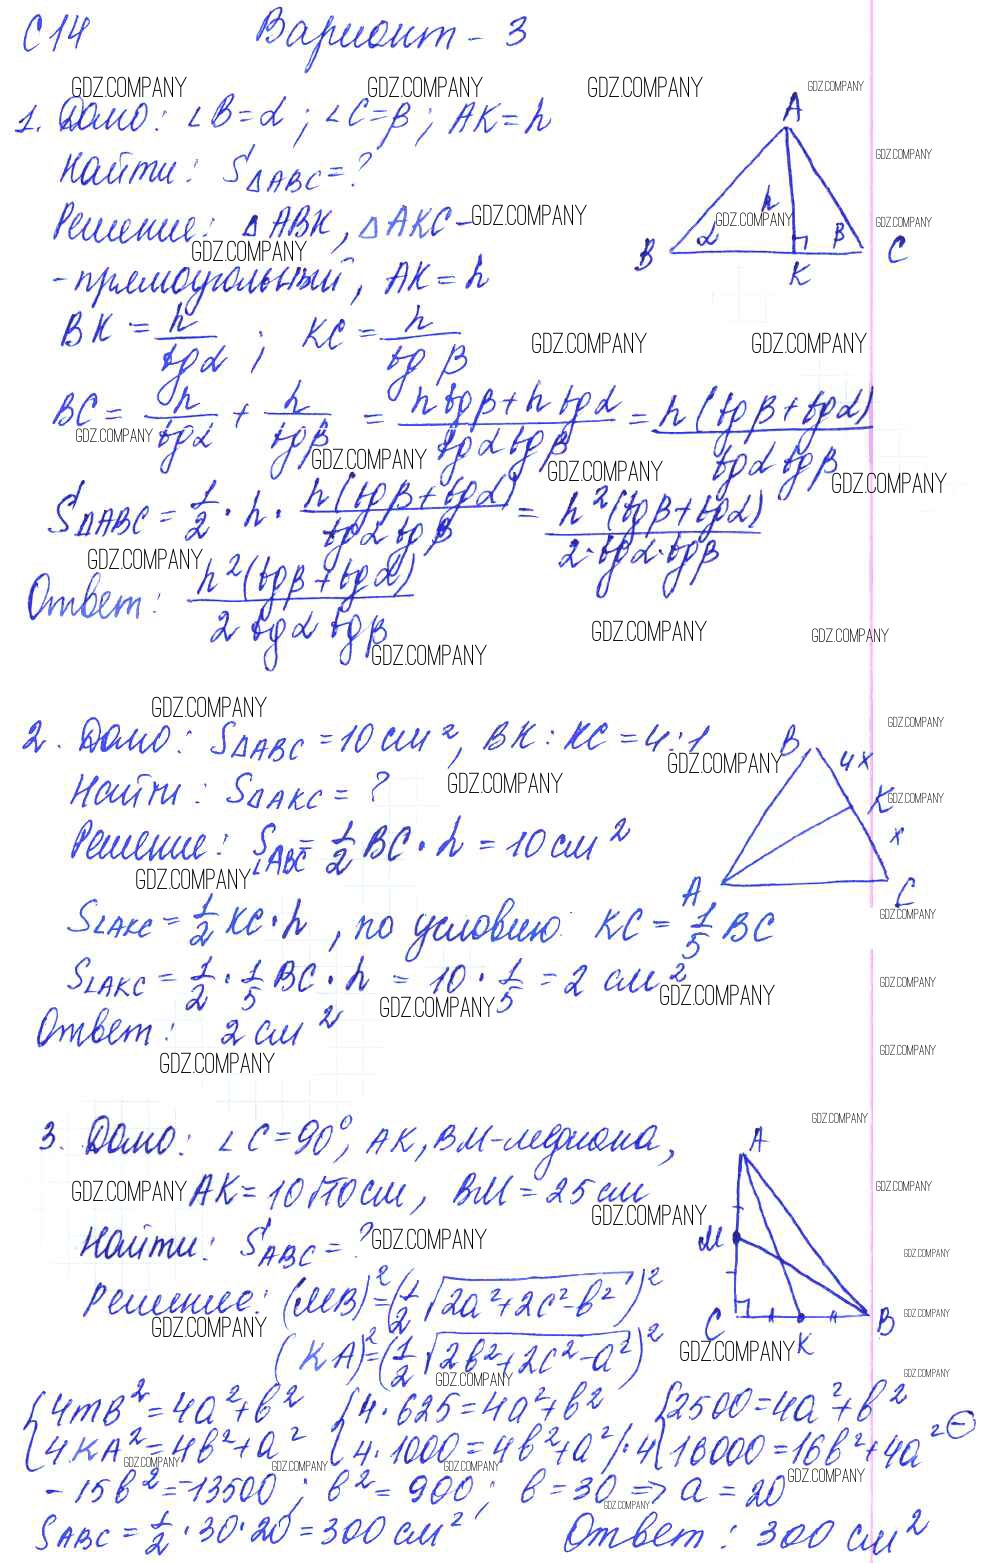 С14 Вариант - 3
1. Дано: ∠B=α; ∠C=β; AK=h
Найти: S△ABC=?
Решение: △ABK, △AKC -
- прямоугольный, AK=h
BK = h/tgα; KC = h/tgβ
BC = h/tgα + h/tgβ = (h tgβ + h tgα)/(tgα tgβ) = h(tgβ+tgα)/(tgα tgβ)
S△ABC = 1/2 · h · h(tgβ+tgα)/(tgα tgβ) = h²(tgβ+tgα)/(2·tgα·tgβ)
Ответ: h²(tgβ+tgα)/(2 tgα tgβ)
A
h
α
β
B
K
C
2. Дано: S△ABC = 10 см², BK : KC = 4:1
Найти: S△AKC = ?
Решение: S∠ABC = 1/2 BC · h = 10 см²
S∠AKC = 1/2 KC·h, по условию KC = 1/5 BC
S∠AKC = 1/2 · 1/5 BC · h = 10 · 1/5 = 2 см²
Ответ: 2 см²
B
4x
K
x
A
C
3. Дано: ∠C=90°, AK, BM-медиана,
AK=10√10 см, BM = 25 см
Найти: S ABC = ?
Решение: (MB)²=(1/2 √2a²+2c²-b²)²
(KA)²=(1/2 √2b²+2c²-a²)²
{4mB²=4a²+b² {4·625=4a²+b² {2500=4a²+b²
{4KA²=4b²+a² {4·1000=4b²+a² /·4 {16000=16b²+4a² ⊖
-15b²=-13500; b²=900; b=30 => a=20
S ABC = 1/2 · 30·20 = 300 см² Ответ: 300 см²
A
M
C
K
B
GDZ.COMPANY